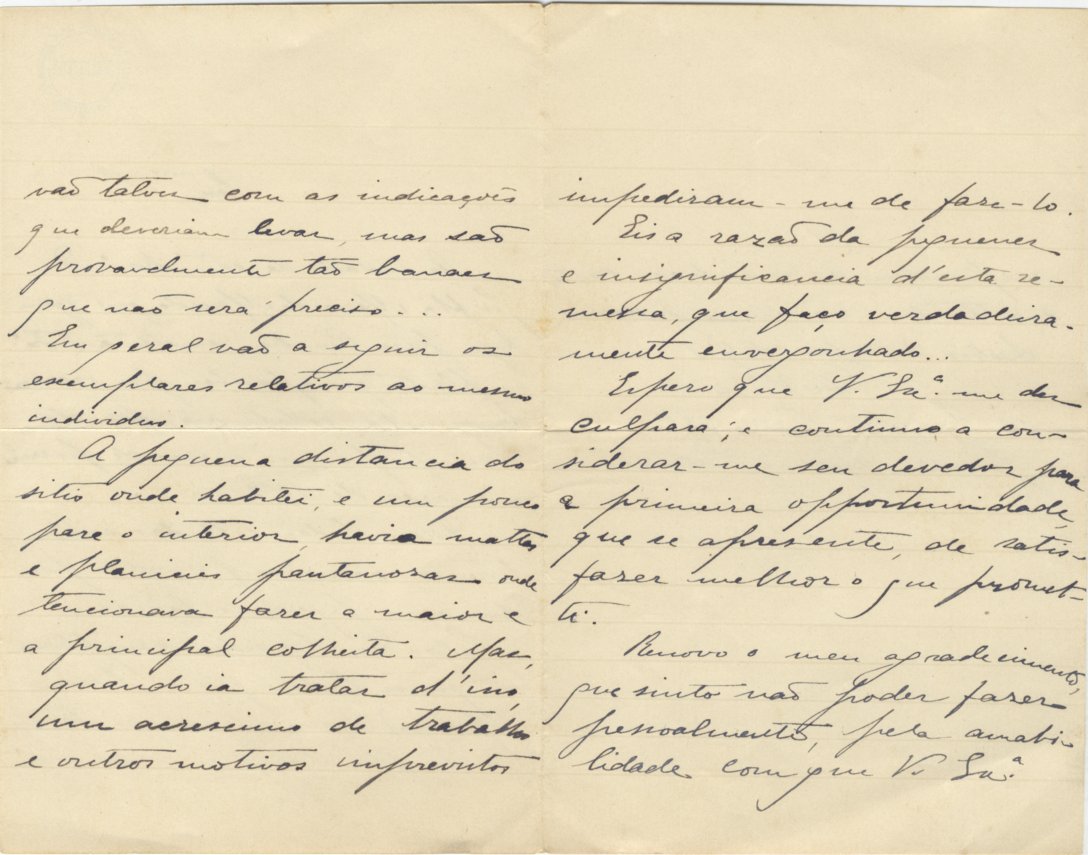 vaõ talvez com as indicações
que deveriam levar, mas saõ
provavelmente taõ banaes
que naõ será preciso...
Em geral vaõ a seguir os
exemplares relativos ao mesmo
individuo.
A pequena distancia do
sitio onde habitei, e um pouco
para o interior, havia mattas
e planicies pantanozas onde
tencionava fazer a maior e
a principal colheita. Mas,
quando ia tratar d'isso,
um acrescimo de trabalho
e outros motivos imprevistos
impediram-me de faze-lo.
Eis a razaõ da pequenez
e insignificancia d'esta re-
messa, que faço verdadeira-
mente envergonhado...
Espero que V. Sa.ª me des
culpará; e continuo a con-
siderar-me seu devedor para
a primeira opportunidade,
que se apresente, de satis-
fazer melhor o que promet-
ti.
Renovo o meu agradecimento,
que sinto naõ poder fazer
pessoalmente, pela amabi-
lidade com que V. Sa.ª